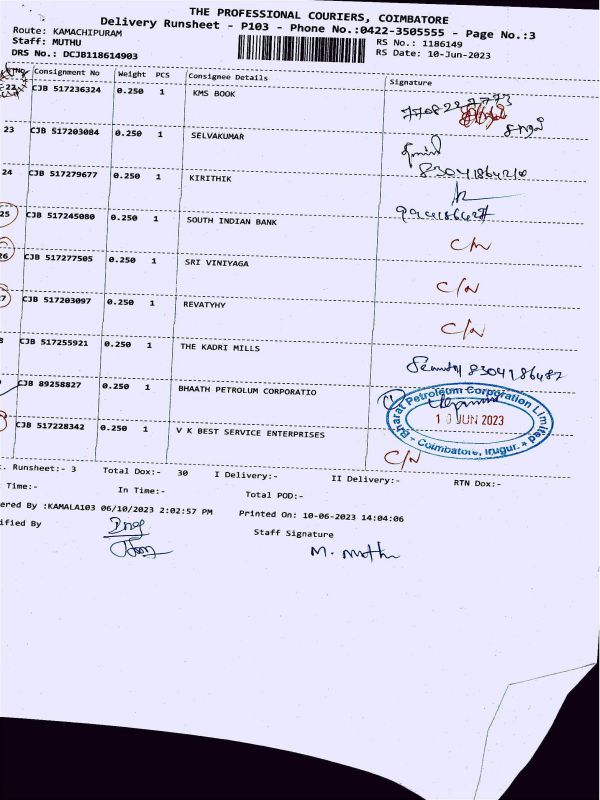 THE PROFESSIONAL COURIERS, COIMBATORE
Delivery Runsheet - P103 - Phone No.:0422-3505555 - Page No.:3
Route: KAMACHIPURAM
Staff: MUTHU
RS No.: 1186149
DRS No.: DCJB118614903
RS Date: 10-Jun-2023
Consignment No Weight PCS Consignee Details Signature
22 CJB 517236324 0.250 1 KMS BOOK
23 CJB 517203084 0.250 1 SELVAKUMAR
24 CJB 517279677 0.250 1 KIRITHIK
25 CJB 517245080 0.250 1 SOUTH INDIAN BANK C/N
26 CJB 517277505 0.250 1 SRI VINIYAGA C/N
7 CJB 517203097 0.250 1 REVATYHY C/N
8 CJB 517255921 0.250 1 THE KADRI MILLS
CJB 89258827 0.250 1 BHAATH PETROLUM CORPORATIO
Bharat Petroleum Corporation Limited
10 JUN 2023
Coimbatore, Irugur.
CJB 517228342 0.250 1 V K BEST SERVICE ENTERPRISES C/N
. Runsheet:- 3 Total Dox:- 30 I Delivery:- II Delivery:- RTN Dox:-
Time:- In Time:- Total POD:-
ered By :KAMALA103 06/10/2023 2:02:57 PM Printed On: 10-06-2023 14:04:06
ified By Staff Signature
M. Muthu